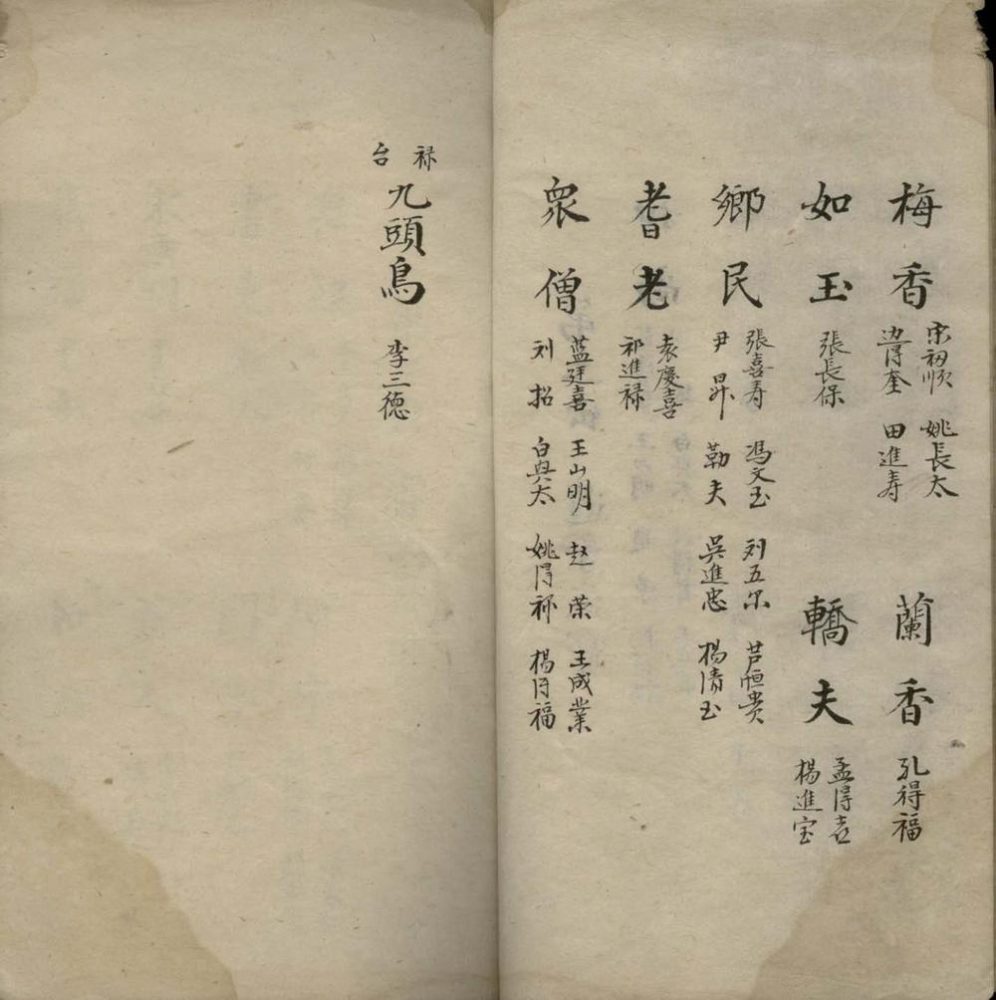 梅香 宋初順 姚長太 边得奎 田進寿
蘭香 孔得福
如玉 張長保
轎夫 孟得喜 楊進宝
鄉民 張喜寿 馮文玉 刘五尔 芦恒贵 尹昇 勒夫 吳進忠 楊清玉
耆老 袁慶喜 祁進禄
衆僧 蓝廷喜 王山明 赵荣 王成業 刘招 白興太 姚得 楊得福
禄台
九頭鳥 李三德